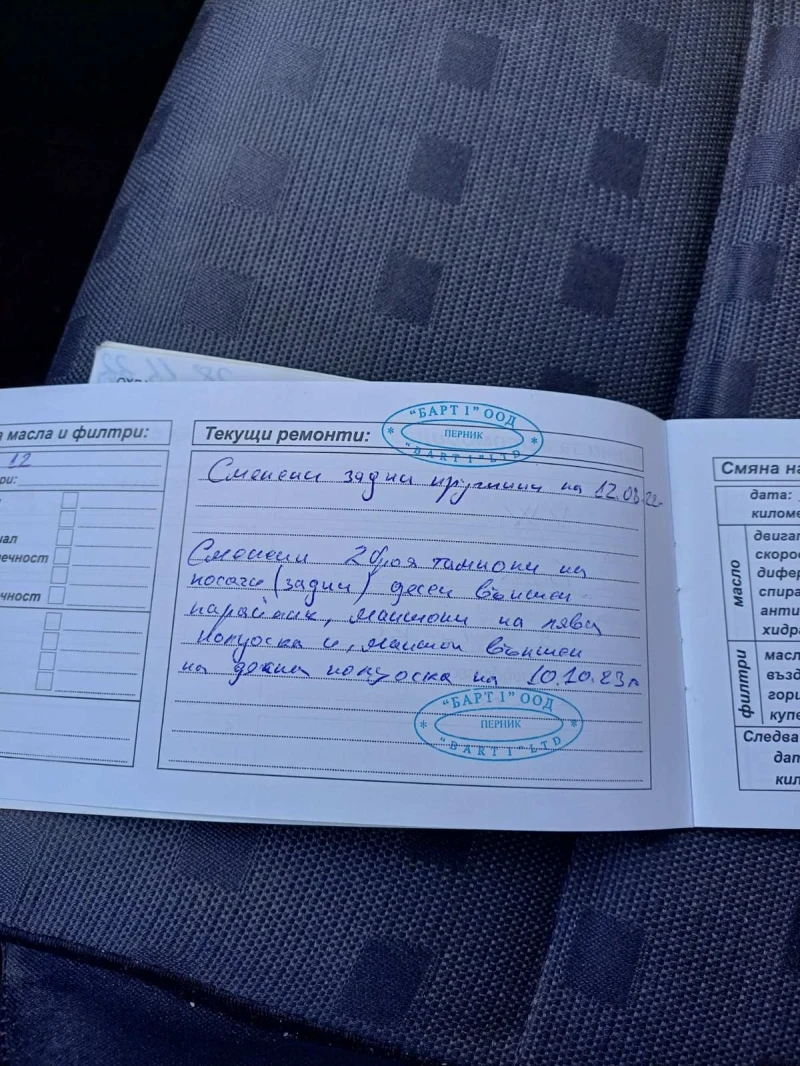 а масла и филтри:
12
ри:
ал
ечност
чност
Текущи ремонти:
"БАРТ 1" ООД
ПЕРНИК
"BART 1" LTD
Сменени задни пружини на 12.08.22г
Сменени 2 броя тампони на
носачи (задни) десен външен
карайник, маншони на лява
полуоска и, маншон външен
на дясна полуоска на 10.10.23г
"БАРТ 1" ООД
ПЕРНИК
"BART 1" LTD
Смяна на
дата:
киломе
масло
двигат
скоро
дифер
спира
анти
хидр
филтри
масл
възд
гори
купе
Следва
дат
кил